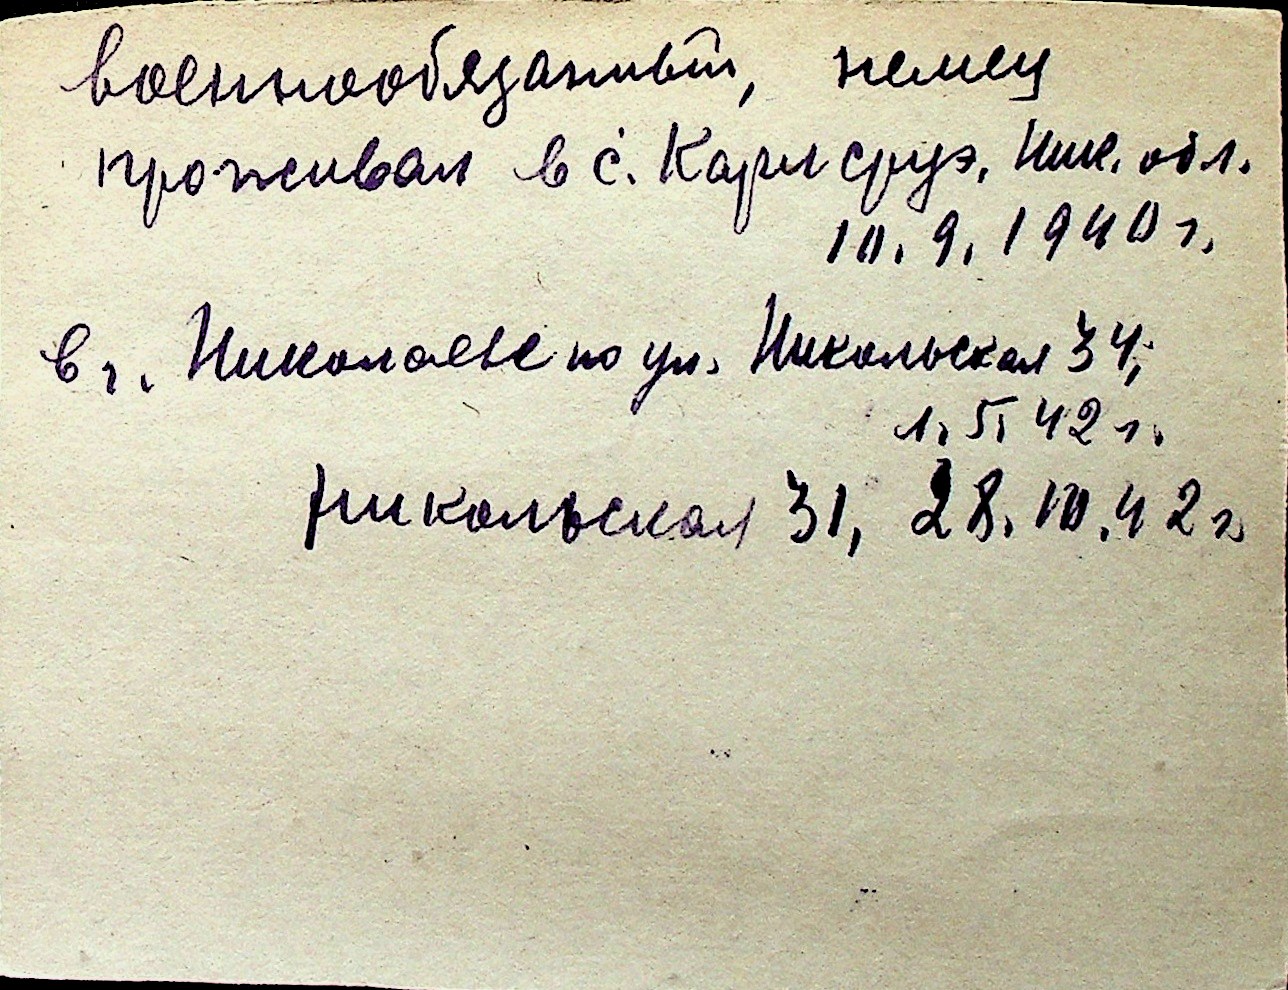 военнообязаный, немец
проживал в с. Карлсруэ, Ник. обл.
10.9.1940 г.
в г. Николаеве по ул. Никольская 34;
1.VI 42 г.
Никольская 31, 28.10.42 г.